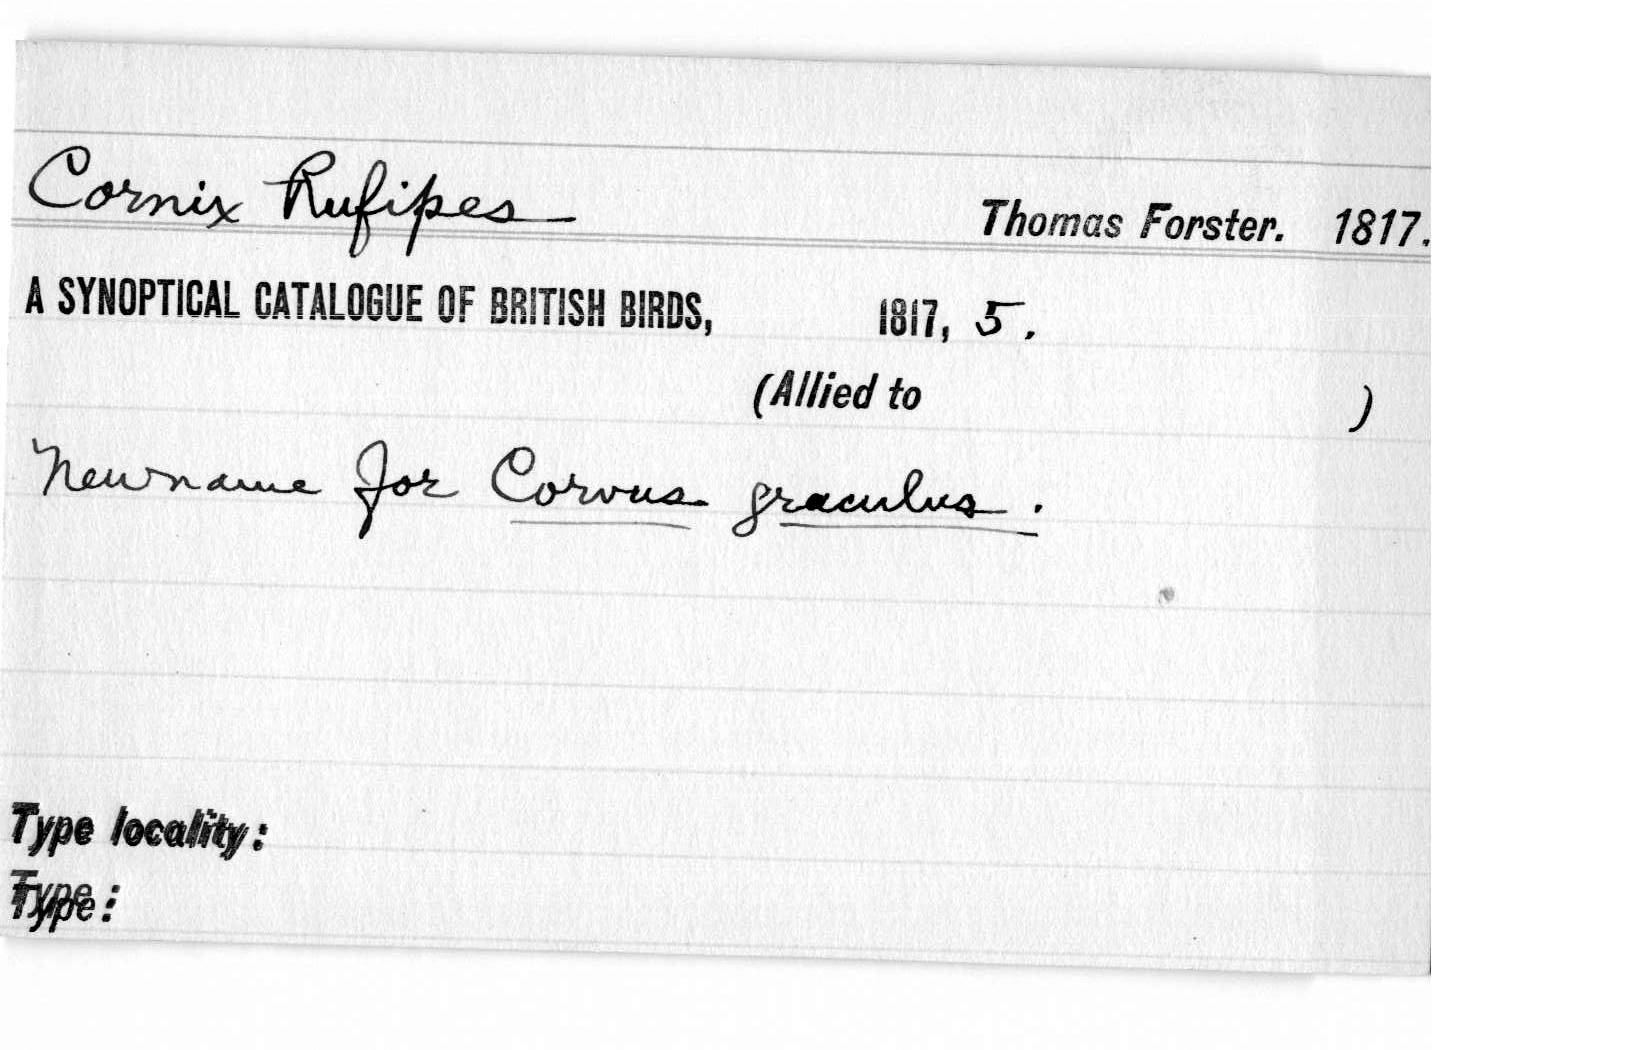 Cornix Rufipes Thomas Forster. 1817.
A SYNOPTICAL CATALOGUE OF BRITISH BIRDS, 1817, 5.
(Allied to )
New name for Corvus graculus.
Type locality:
Type: